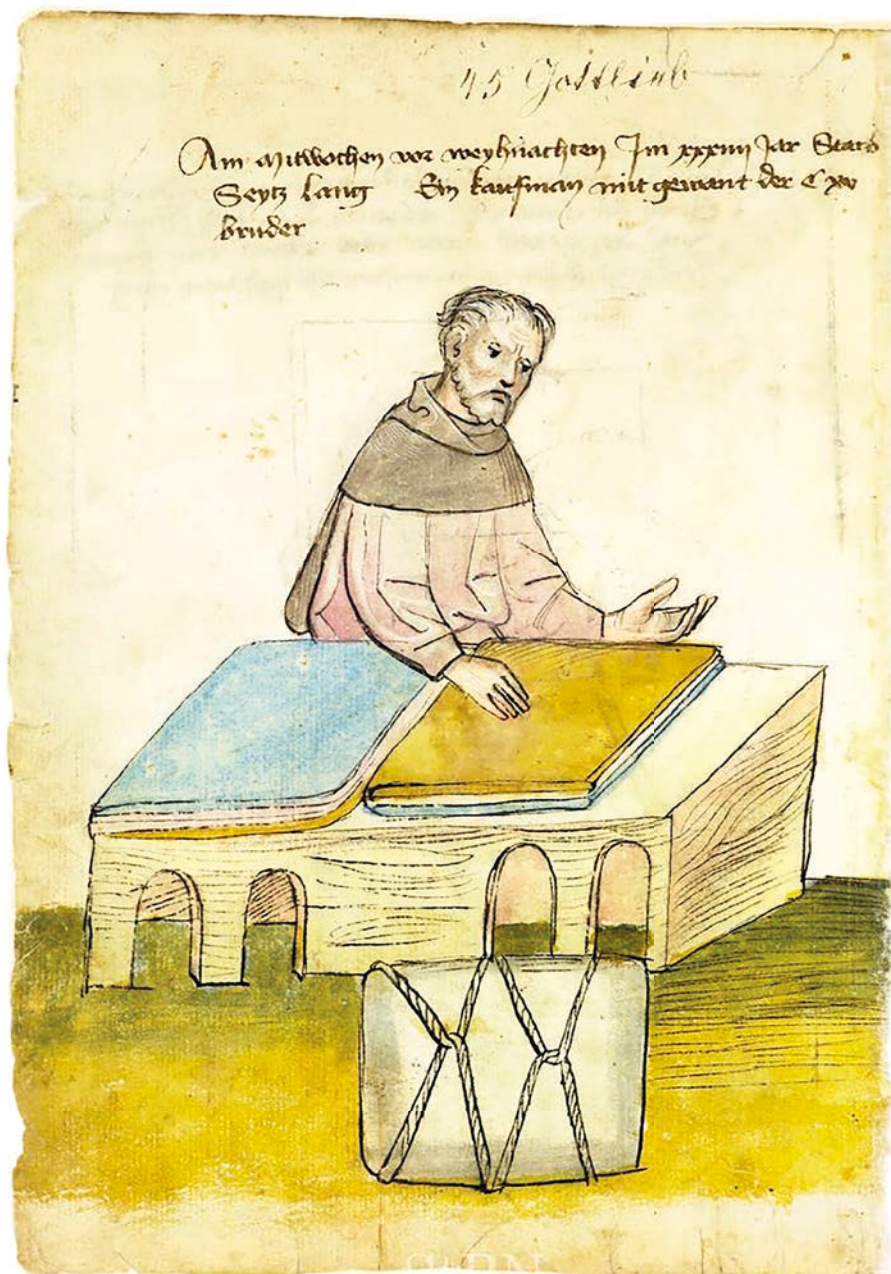 45 Gottlieb
Am mitwochen vor weyhnachten Im xxxiiij Jar Starb
Seytz lang Ein kaufman mit gewant der C xv
bruder